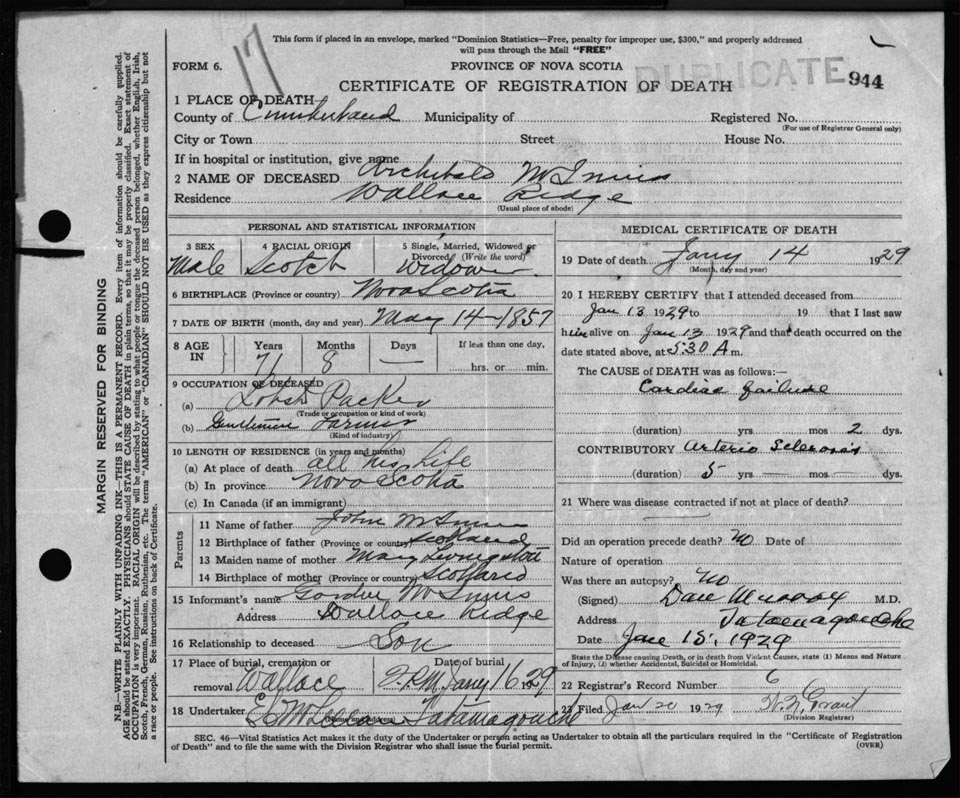 17
This form if placed in an envelope, marked "Dominion Statistics—Free, penalty for improper use, $300," and properly addressed
will pass through the Mail "FREE"
FORM 6.
PROVINCE OF NOVA SCOTIA
DUPLICATE 944
CERTIFICATE OF REGISTRATION OF DEATH
1 PLACE OF DEATH
County of Cumberland Municipality of Registered No.
(For use of Registrar General only)
City or Town Street House No.
If in hospital or institution, give name
2 NAME OF DECEASED Archibald McInnis
Residence Wallace Ridge
(Usual place of abode)
PERSONAL AND STATISTICAL INFORMATION
3 SEX 4 RACIAL ORIGIN 5 Single, Married, Widowed or
Divorced (Write the word)
Male Scotch Widower
6 BIRTHPLACE (Province or country) Nova Scotia
7 DATE OF BIRTH (month, day and year) May 14—1857
8 AGE IN Years Months Days If less than one day,
71 8 — hrs. or min.
9 OCCUPATION OF DECEASED
(a) Lobster Packer
(Trade or occupation or kind of work)
(b) Gentlemen Farmer
(Kind of industry)
10 LENGTH OF RESIDENCE (in years and months)
(a) At place of death all his life
(b) In province Nova Scotia
(c) In Canada (if an immigrant)
Parents
11 Name of father John McInnis
12 Birthplace of father (Province or country) Scotland
13 Maiden name of mother Mary Livingston
14 Birthplace of mother (Province or country) Scotland
15 Informant's name Gordon McInnis
Address Wallace Ridge
16 Relationship to deceased Son
17 Place of burial, cremation or Date of burial
removal Wallace 2 P.M. Janry 16 1929
18 Undertaker Tatamagouche
MEDICAL CERTIFICATE OF DEATH
19 Date of death Janry 14 1929
(Month, day and year)
20 I HEREBY CERTIFY that I attended deceased from
Jan 13 1929 to 19 that I last saw
him alive on Jan 13 1929 and that death occurred on
date stated above, at 5:30 A m.
The CAUSE OF DEATH was as follows:—
Cardiac failure
(duration) yrs. mos 2 dys.
CONTRIBUTORY Arterio Sclerosis
(duration) 5 yrs. — mos — dys.
21 Where was disease contracted if not at place of death?
Did an operation precede death? No Date of
Nature of operation
Was there an autopsy? No
(Signed) Dan Murray M.D.
Address Tatamagouche
Date Jan 15, 1929
State the Disease causing Death, or in death from Violent Causes, state (1) Means and Nature
of Injury, (2) whether Accidental, Suicidal or Homicidal.
22 Registrar's Record Number 6
23 Filed Jan 20 1929 Grant
(Division Registrar)
SEC. 46—Vital Statistics Act makes it the duty of the Undertaker or person acting as Undertaker to obtain all the particulars required in the "Certificate of Registration
of Death" and to file the same with the Division Registrar who shall issue the burial permit.
(OVER)
MARGIN RESERVED FOR BINDING
N.B.—WRITE PLAINLY WITH UNFADING INK—THIS IS A PERMANENT RECORD. Every item of information should be carefully supplied.
AGE should be stated EXACTLY. PHYSICIANS should STATE CAUSE OF DEATH in plain terms, so that it may be properly classified. Exact statement of
OCCUPATION is very important. RACIAL ORIGIN will be described by stating to what people or tongue the deceased person belonged, whether English, Irish,
Scotch, French, German, Russian, Ruthenian, etc. The terms "AMERICAN" or "CANADIAN" SHOULD NOT BE USED as they express citizenship but not
a race or people. See instructions on back of Certificate.